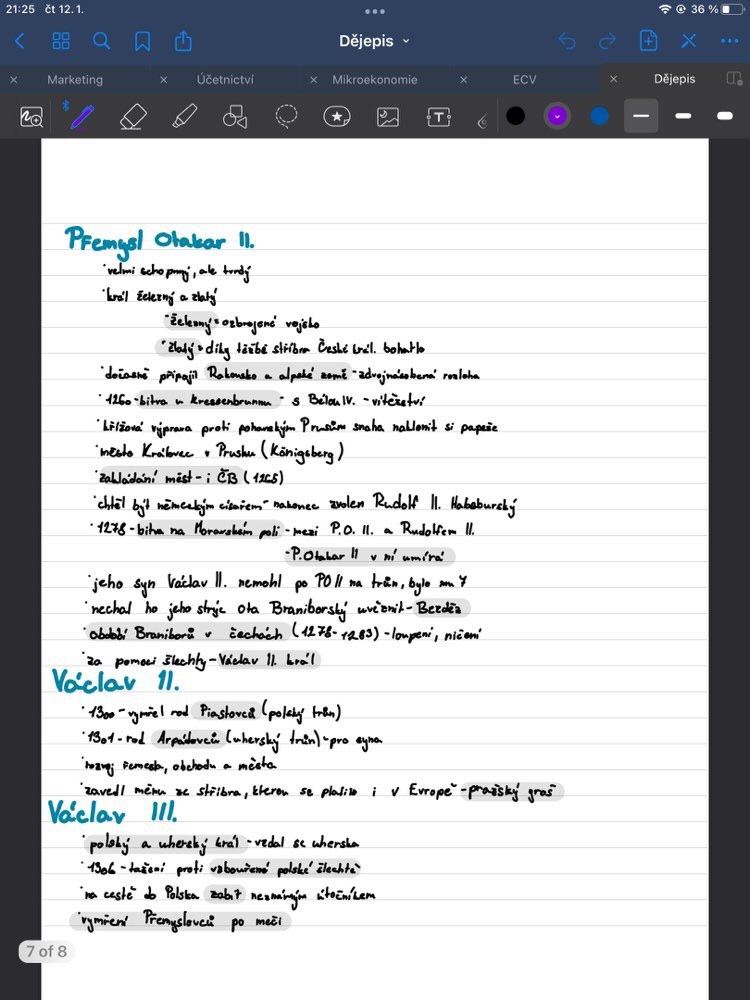 21:25 čt 12. 1.
36 %
Dějepis
Marketing
Účetnictví
Mikroekonomie
ECV
Dějepis
Přemysl Otakar II.
velmi schopný, ale tvrdý
král železný a zlatý
železný = ozbrojené vojsko
zlatý = díky těžbě stříbra České král. bohatlo
dočasně připojil Rakousko a alpské země - zdvojnásobená rozloha
1260 - bitva u kressenbrunnu - s Bélou IV. - vítězství
křížová výprava proti pohanským Prusům snaha naklonit si papeže
město Královec v Prusku (Königsberg)
zakládání měst - i ČB (1265)
chtěl být německým císařem - nakonec zvolen Rudolf II. Habsburský
1278 - bitva na Moravském poli - mezi P.O. II. a Rudolfem II.
- P. Otakar II v ní umírá
jeho syn Václav II. nemohl po PO II na trůn, bylo mu 7
nechal ho jeho strýc ota Braniborský uvěznit - Bezděz
období Braniborů v čechách (1278-1283) - loupení, ničení
za pomoci šlechty - Václav II. král
Václav II.
1300 - vymřel rod Piastovců (polský trůn)
1301 - rod Arpádovců (uherský trůn) - pro syna
rozvoj řemesla, obchodu a města
zavedl měnu ze stříbra, kterou se platilo i v Evropě - pražský groš
Václav III.
polský a uherský král - vzdal se uherska
1306 - tažení proti vzbouřené polské šlechtě
na cestě do Polska zabit neznámým útočníkem
vymření Přemyslovců po meči
7 of 8